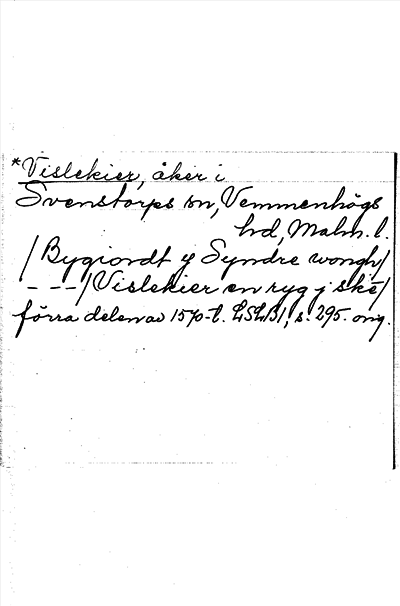 *Vislekier, åker i
Svenstorps sn, Vemmenhögs
hd, Malm. l.
/Bygiordt y Syndre wongh/
---/Vislekier en ryg j ske/
förra delen av 1570-t. LSLB1, s. 295. orig.